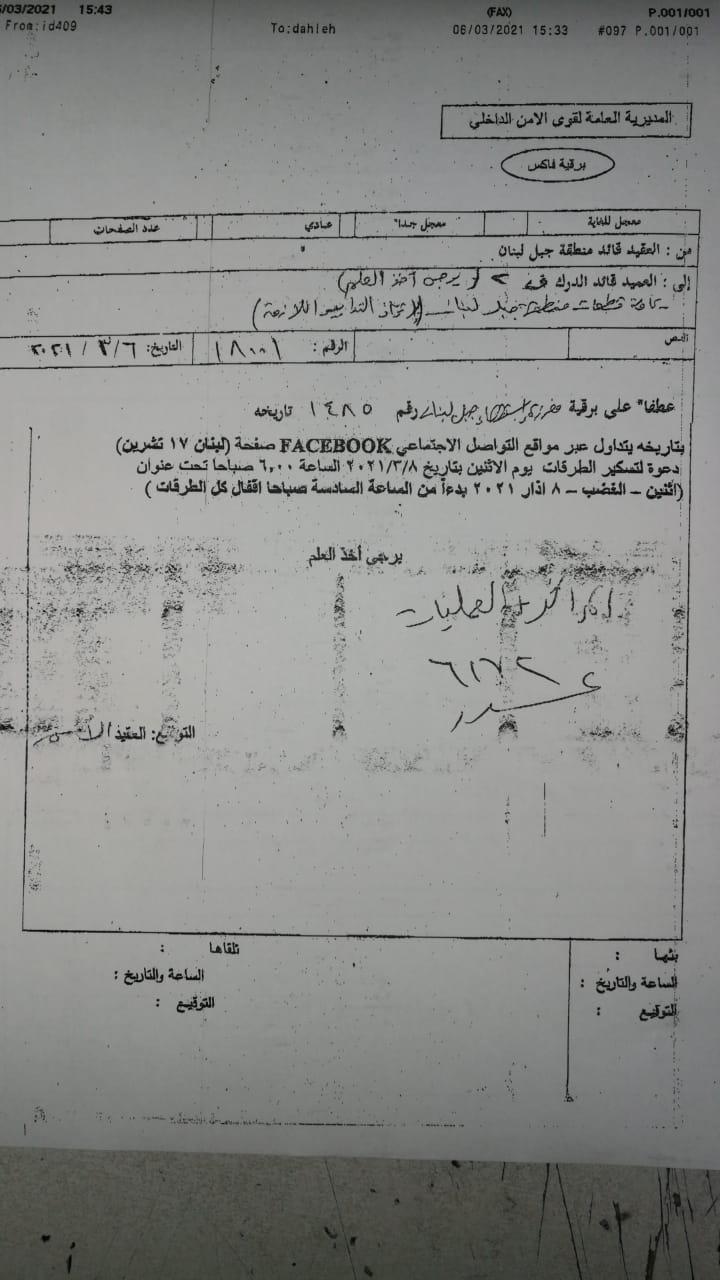 /03/2021 15:43 (FAX) P.001/001
From:id409 To:dahleh 06/03/2021 15:33 #097 P.001/001
المديرية العامة لقوى الامن الداخلي
برقية فاكس
معجل للغاية معجل جدا" عادي عدد الصفحات
من : العقيد قائد منطقة جبل لبنان
إلى : العميد قائد الدرك ( يرجى أخذ العلم)
كافة قطعات منطقة جبل لبنان (لإتخاذ التدابير اللازمة)
النص الرقم : ١٨٠٠١ التاريخ: ٢٠٢١/٣/٦
عطفا" على برقية جبل لبنان رقم ١٤٨٥ تاريخه
بتاريخه يتداول عبر مواقع التواصل الاجتماعي FACEBOOK صفحة (لبنان ١٧ تشرين)
دعوة لتسكير الطرقات يوم الاثنين بتاريخ ٢٠٢١/٣/٨ الساعة ٦,٠٠ صباحا تحت عنوان
(اثنين – الغضب – ٨ اذار ٢٠٢١ بدءاً من الساعة السادسة صباحا اقفال كل الطرقات )
يرجى أخذ العلم
العمليات
التوقيع: العقيد
بثها :
الساعة والتاريخ :
التوقيع :
تلقاها :
الساعة والتاريخ :
التوقيع :